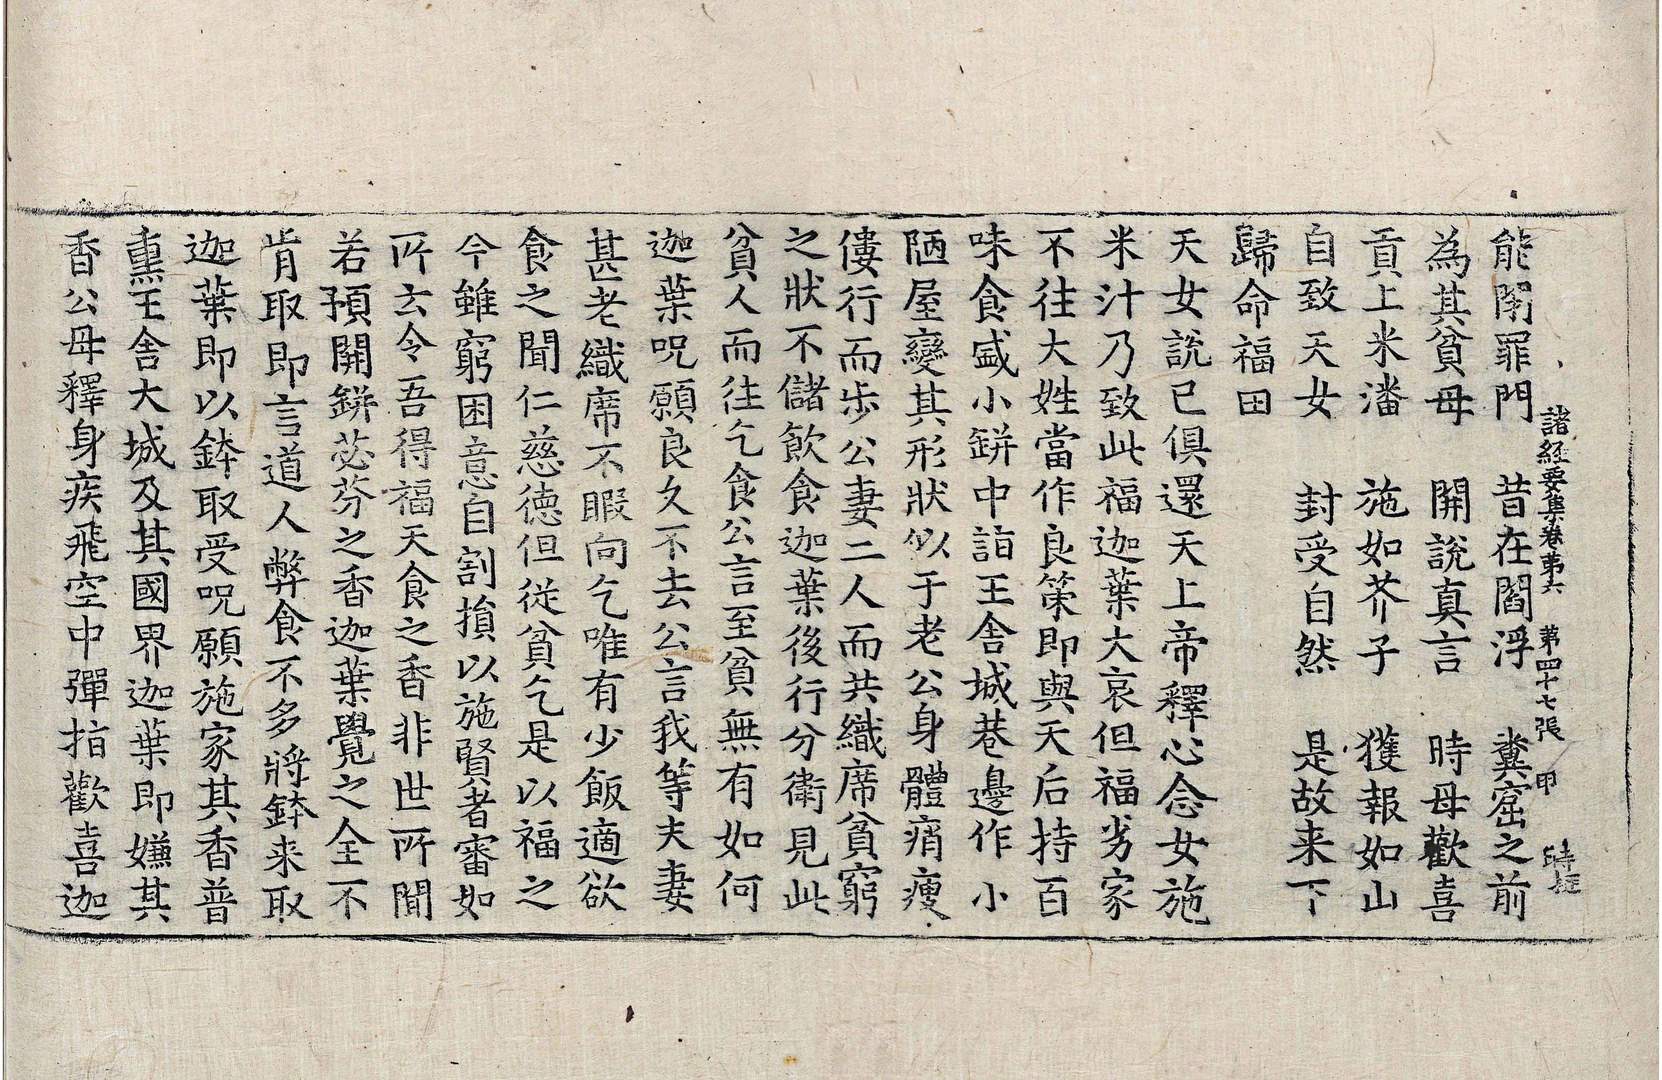 諸經要集卷第六　第四十七張　甲
能閉罪門　昔在閻浮　糞窟之前
為其貧母　開說真言　時母歡喜
貢上米潘　施如芥子　獲報如山
自致天女　封受自然　是故来下
歸命福田
天女說已俱還天上帝釋心念女施
米汁乃致此福迦葉大哀但福劣家
不往大姓當作良策即與天后持百
味食盛小鉼中詣王舍城巷邊作小
陋屋變其形狀似于老公身體痟瘦
僂行而步公妻二人而共織席貧窮
之狀不儲飲食迦葉後行分衛見此
貧人而往乞食公言至貧無有如何
迦葉呪願良久不去公言我等夫妻
甚老織席不暇向乞唯有少飯適欲
食之聞仁慈德但従貧乞是以福之
今雖窮困意自割損以施賢者審如
所云令吾得福天食之香非世所聞
若預開鉼苾芬之香迦葉覺之全不
肯取即言道人弊食不多將鉢来取
迦葉即以鉢取受呪願施家其香普
熏王舍大城及其國界迦葉即嫌其
香公母釋身疾飛空中彈指歡喜迦